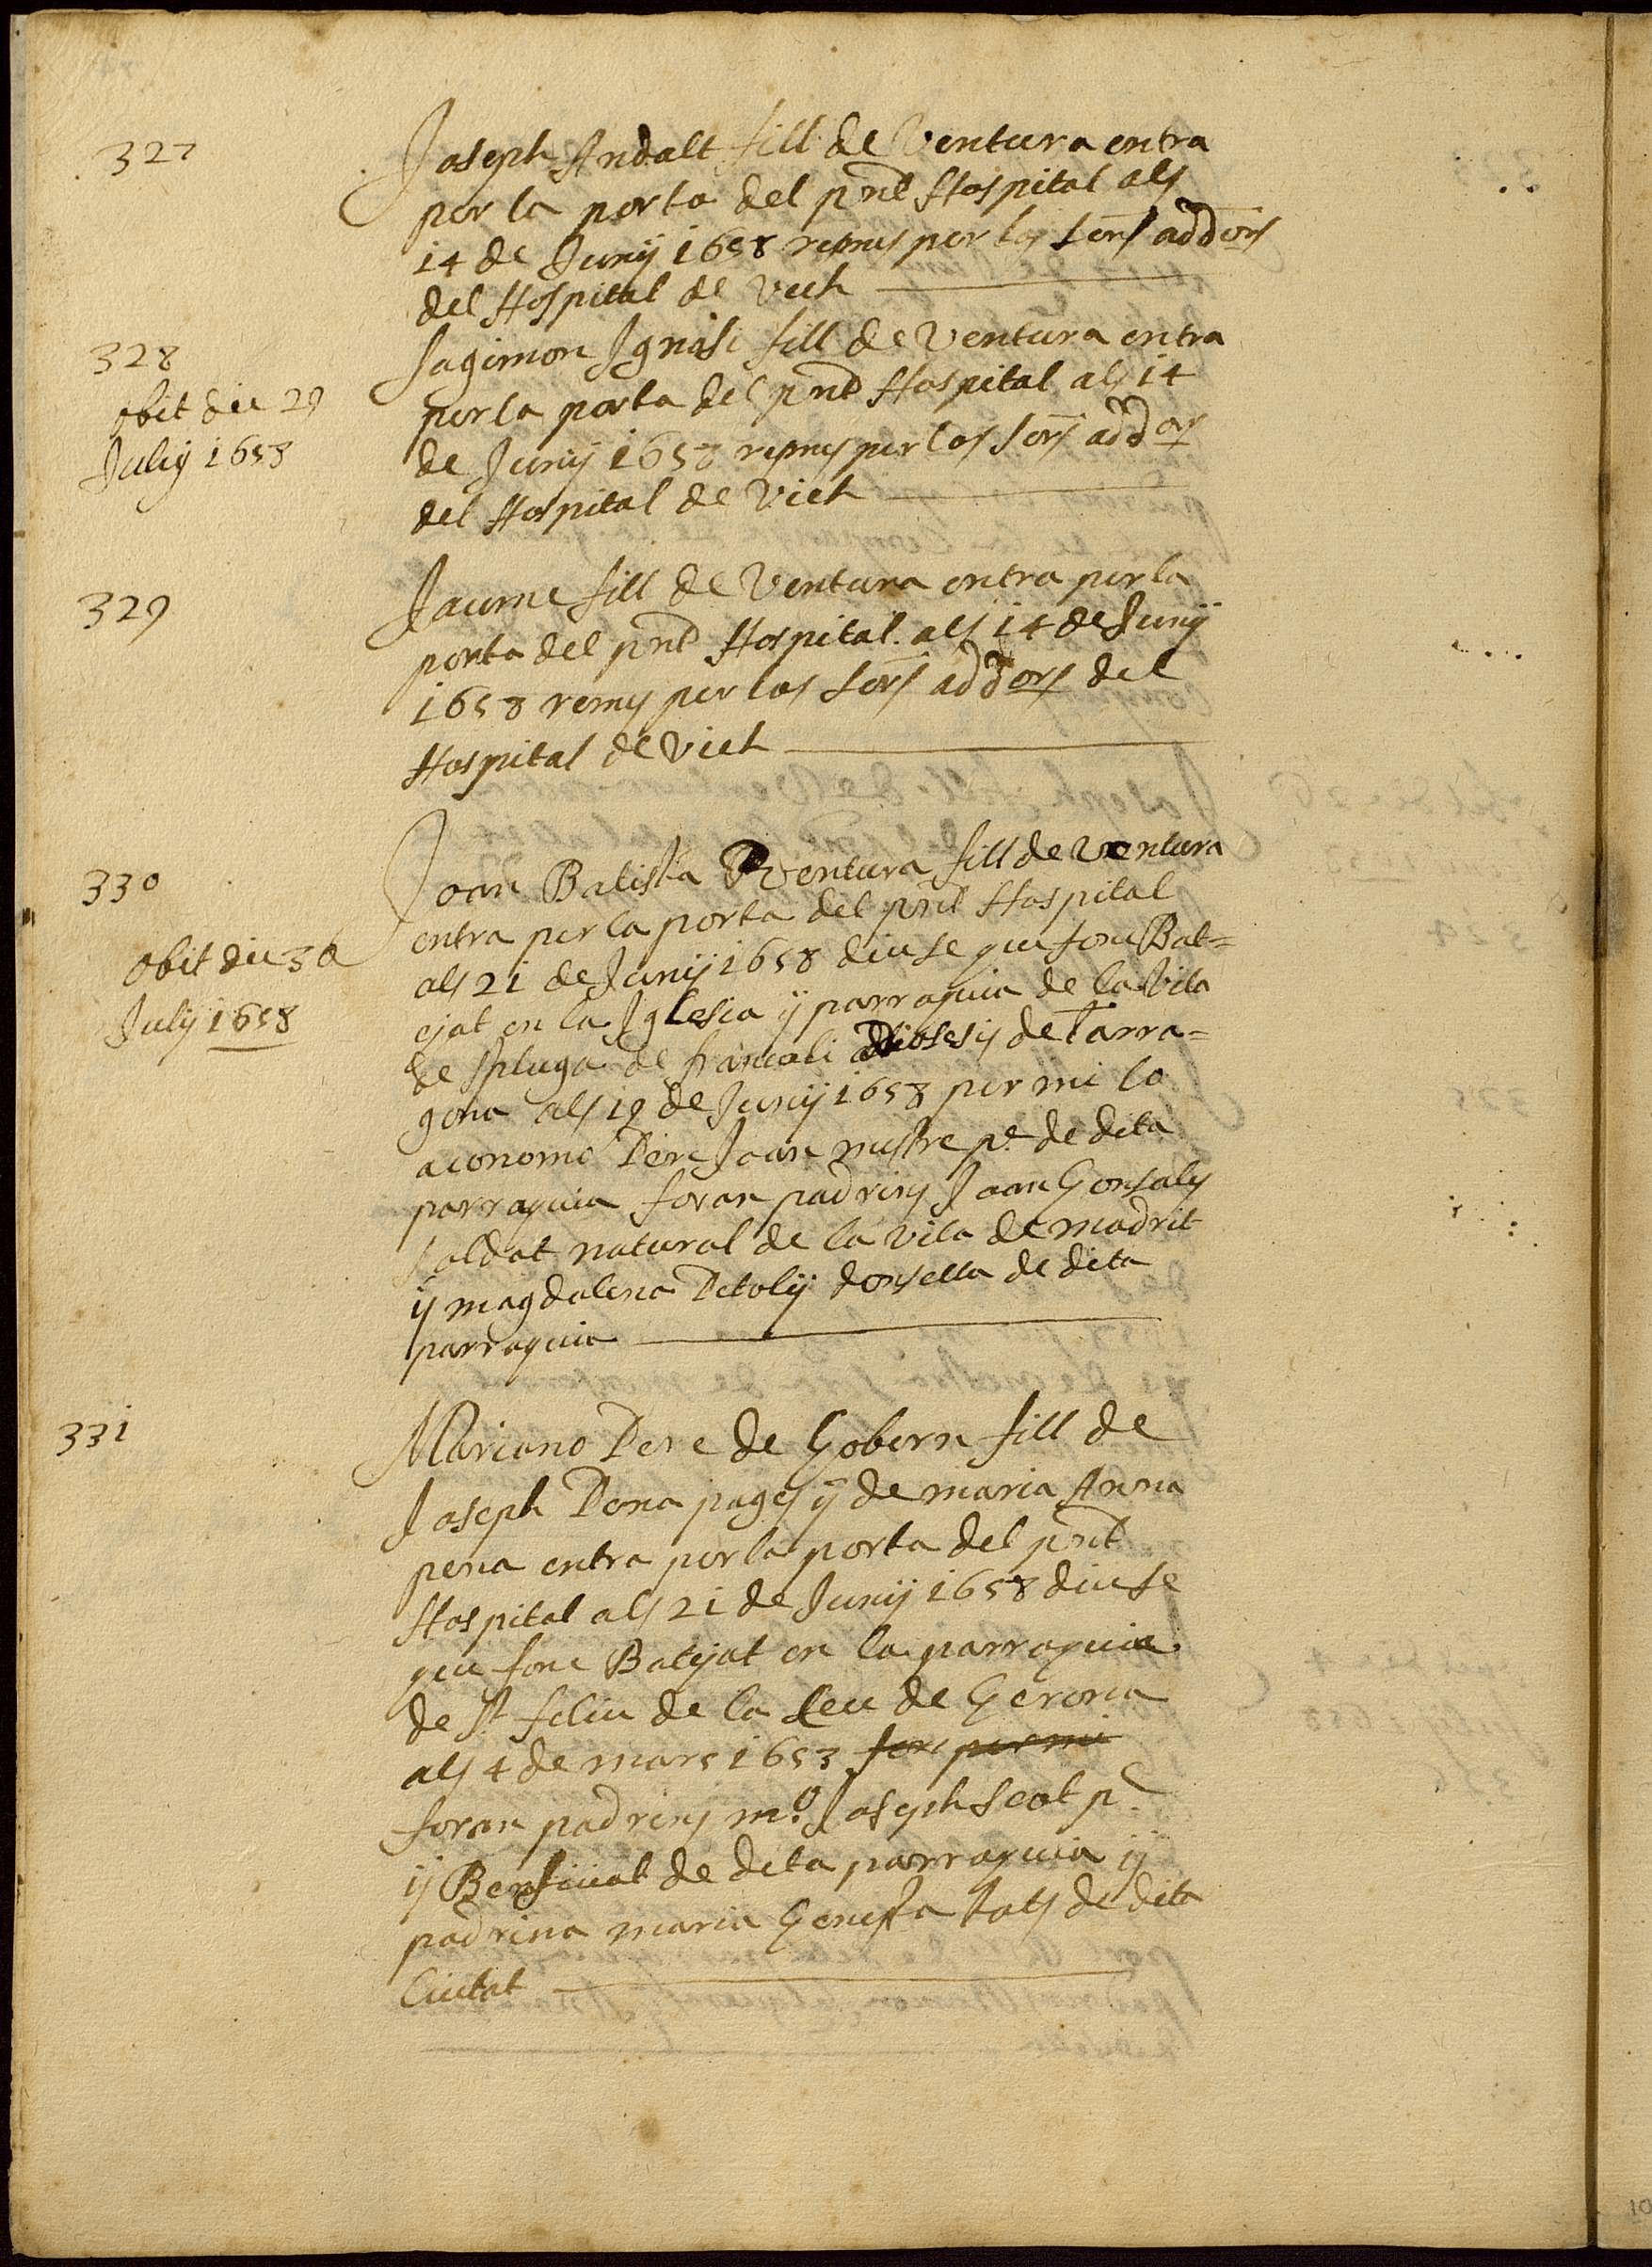 327
Joseph Andalt fill de Ventura entra
per la porta del pnt Hospital als
14 de Junÿ 1658 remes per los Sors addors
del Hospital de Vich
328
obit die 29
Julij 1658
Sagimon Ignasi fill de Ventura entra
per la porta del pnt Hospital als 14
de Junÿ 1658 remes per los Sors addors
del Hospital de Vich
329
Jaume fill de Ventura entra per la
porta del pnt Hospital als 14 de Junÿ
1658 remes per los Sors addors del
Hospital de Vich
330
obit die 30
Julij 1658
Joan Batista Ventura fill de Ventura
entra per la porta del pnt Hospital
als 21 de Junÿ 1658 diuse que fonc Bat=
ejat en la Iglesia ÿ parraquia de la Vila
de Spluga de francoli diosesis de Tarra=
gona als 19 de Junÿ 1658 per mi lo
aconomo Pere Joan mestre pe. de dita
parraquia foran padrins Joan Gonsales
soldat natural de la vila de madrit
ÿ magdalena donsella de dita
parraquia
331
Mariano Pere de Gobern fill de
Joseph Pena pages ÿ de maria Anna
pena entra per la porta del pnt
Hospital als 21 de Junÿ 1658 diuse
que fonc Batejat en la parraquia
de St. feliu de la Seu de Gerona
als 4 de mars 1653 fonc per mi
foran padrins mo. Joseph Scot pe.
ÿ Benficiat de dita parraquia ÿ
padrina maria de dita
Ciutat